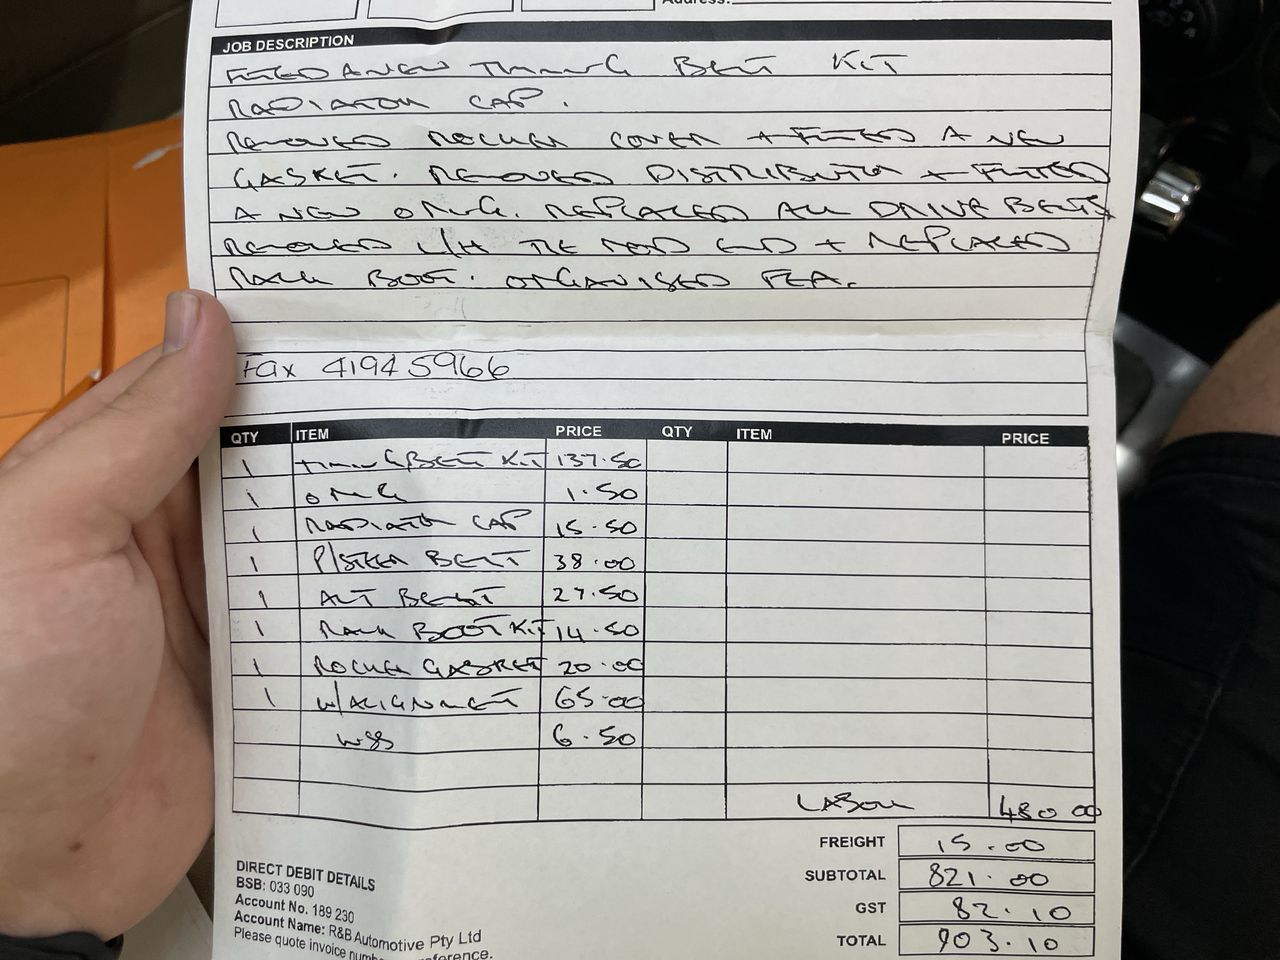 Address:
JOB DESCRIPTION
FITTED A NEW TIMING BELT KIT
RADIATOR CAP.
REMOVED ROCKER COVER + FITTED A NEW
GASKET. REMOVED DISTRIBUTOR + FITTED
A NEW O RING. REPLACED ALL DRIVE BELTS
REMOVED L/H TIE ROD END + REPLACED
RACK BOOT. ORGANISED FEA.
Fax 41945966
QTY ITEM PRICE QTY ITEM PRICE
1 TIMING BELT KIT 137.50
1 O RING 1.50
1 RADIATOR CAP 15.50
1 P/STEER BELT 38.00
1 ALT BELT 27.50
1 RACK BOOT KIT 14.50
1 ROCKER GASKET 20.00
1 W/ALIGNMENT 65.00
6.50
LABOUR 480 00
FREIGHT 15.00
SUBTOTAL 821.00
GST 82.10
TOTAL 903.10
DIRECT DEBIT DETAILS
BSB: 033 090
Account No. 189 230
Account Name: R&B Automotive Pty Ltd
Please quote invoice